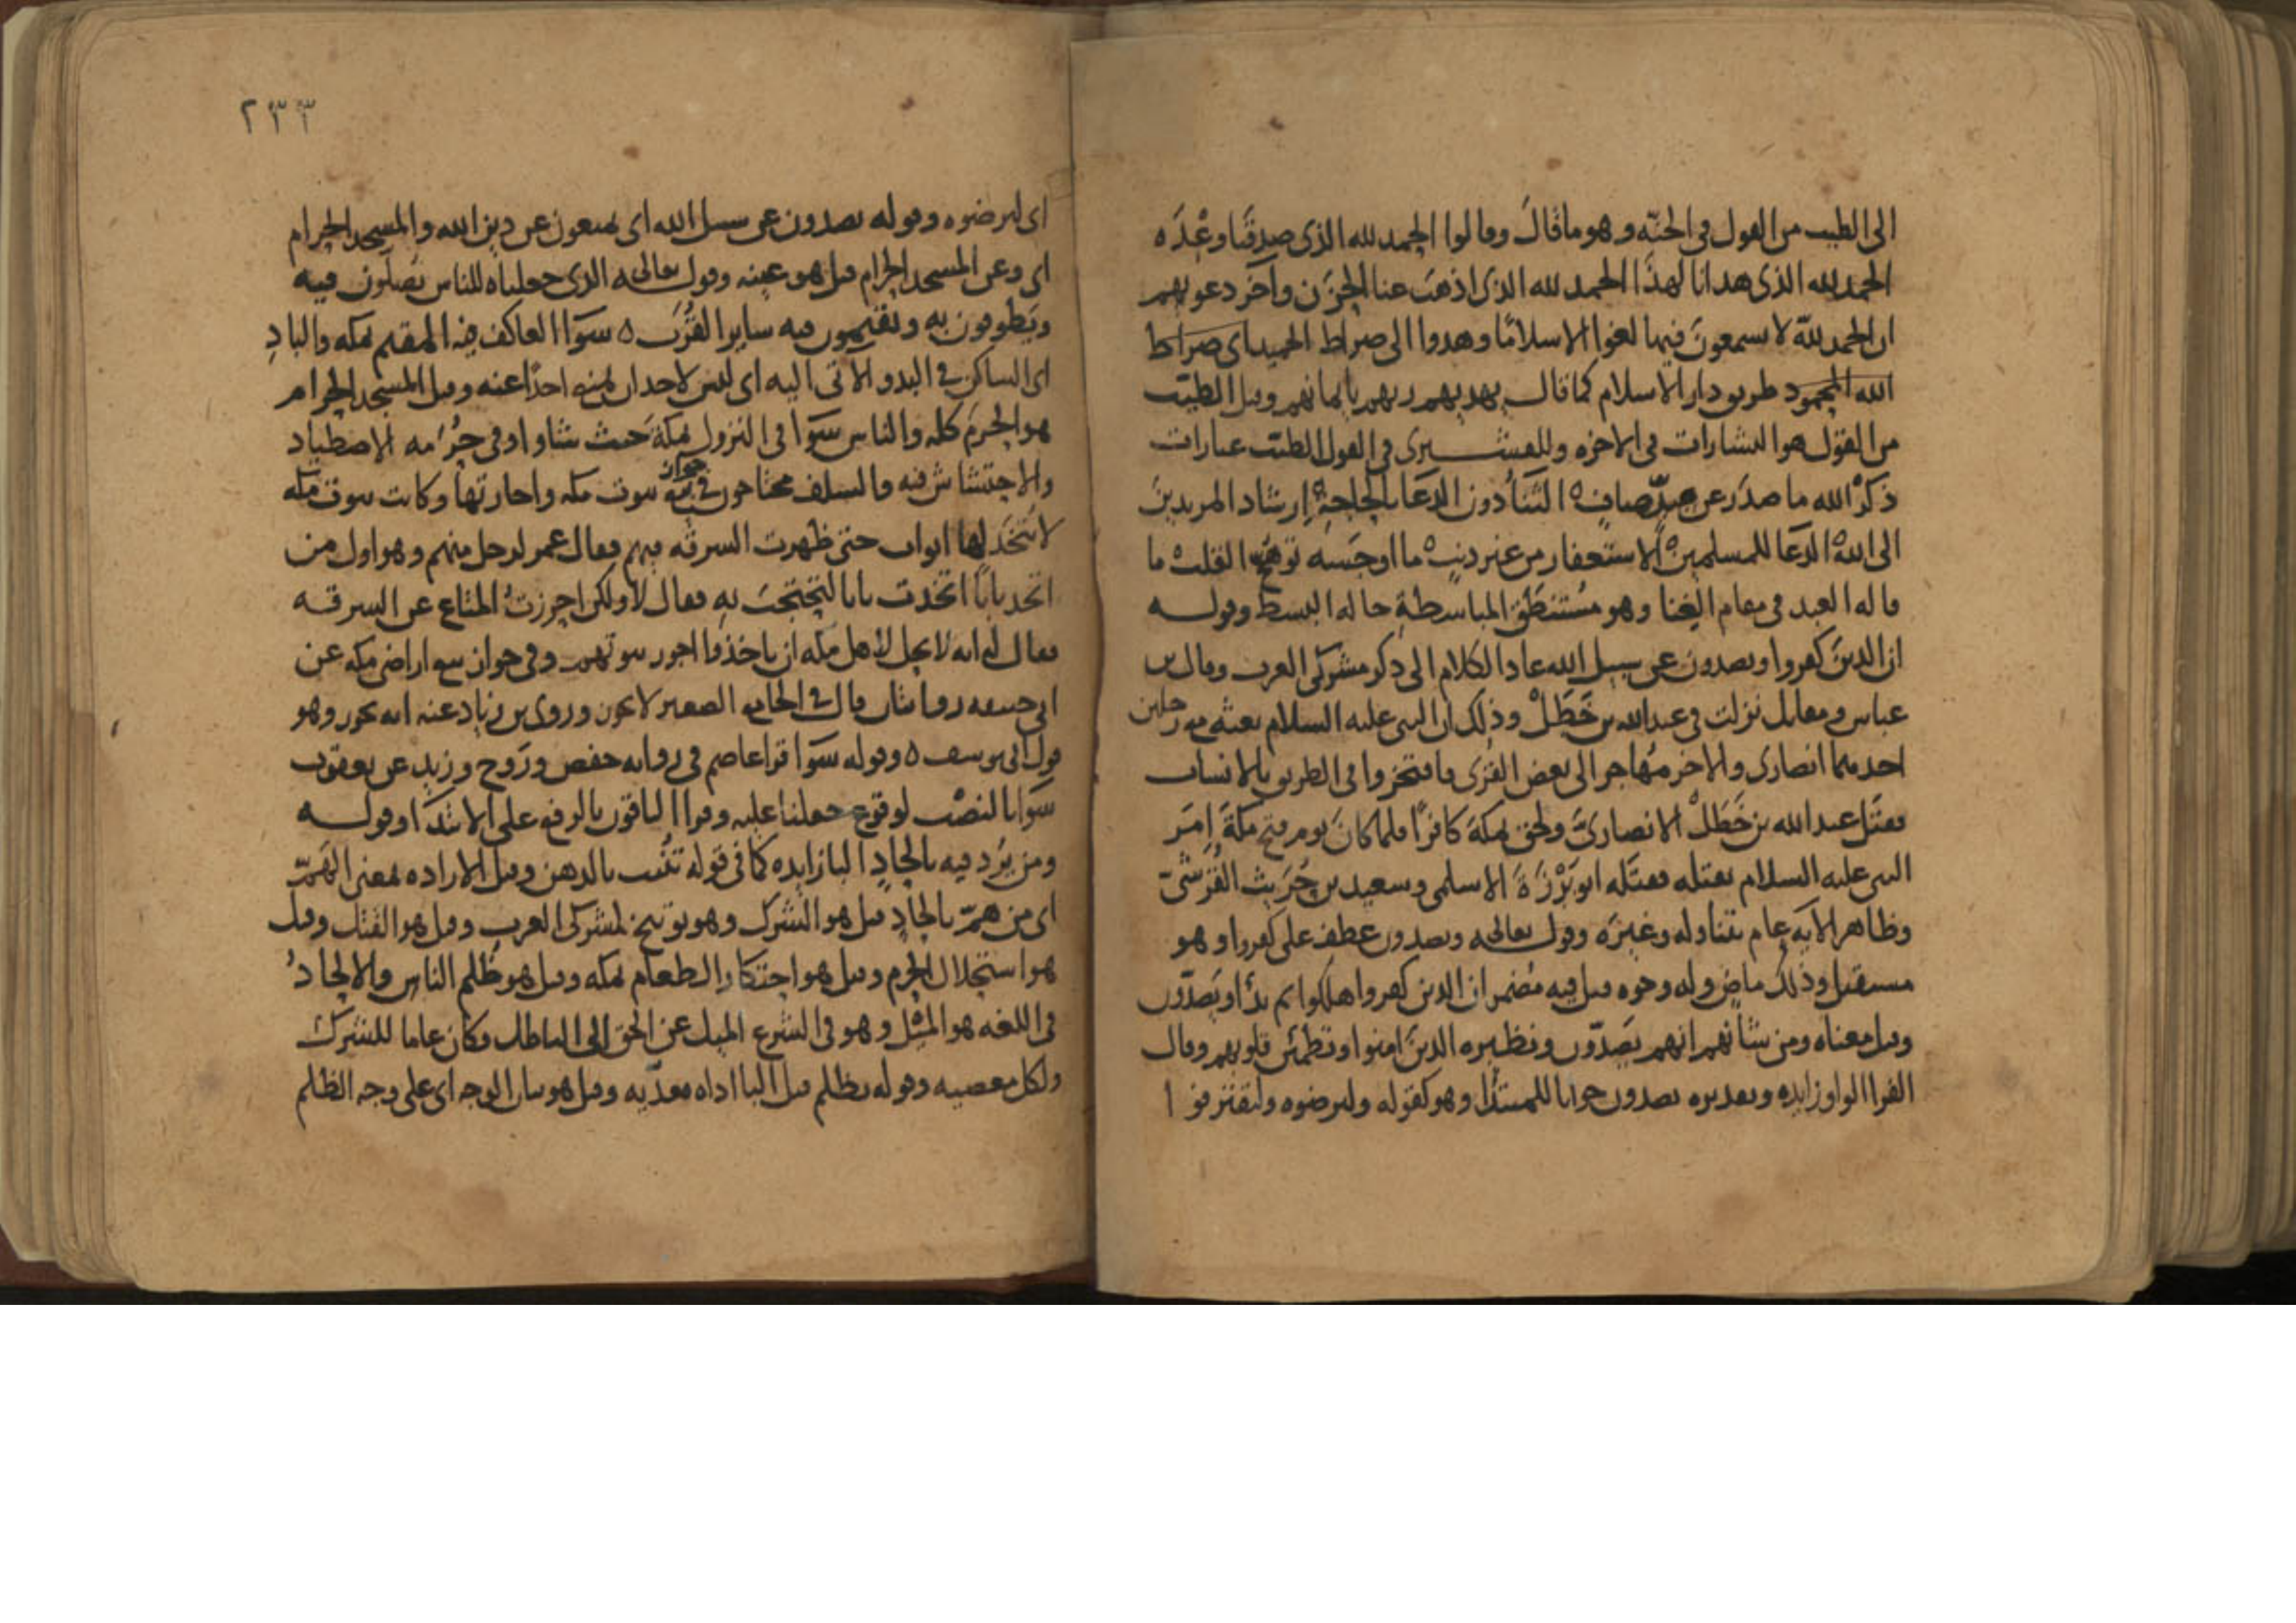 الى الطيب من القول في الجنة وهو ما قال وقالوا الحمد لله الذي صدقنا وعده
الحمد لله الذي هدانا لهذا الحمد لله الذي اذهب عنا الحزن وآخر دعويهم
ان الحمد لله لا يسمعون فيها لغوا الا سلاما وهدوا الى صراط الحميد اي صراط
الله المحمود طريق دار الاسلام كما قال يهديهم ربهم بايمانهم وقيل الطيب
من القول هو البشارات في الاخرة وللقشيري في القول الطيب عبارات
ذكر الله ما صدر عن صاف ه الثنا دون الدعا بالحاجة ه ارشاد المريدين
الى الله ه الدعا للمسلمين ه الاستغفار من غير ذنب ه ما اوجبه القلب ه ما
قاله العبد في مقام الغنا وهو مستنطق المباسطة حاله البسط وقوله
ان الذين كفروا ويصدون عن سبيل الله عاد الكلام الى ذكر مشركي العرب وقال بن
عباس ومقاتل نزلت في عبد الله بن خطل وذلك ان النبي عليه السلام بعثه مع رجلين
احدهما انصاري والاخر مهاجر الى بعض القرى فافتخروا في الطريق بالانساب
فقتل عبد الله بن خطل الانصاري ولحق بمكة كافرا فلما كان يوم فتح مكة امر
النبي عليه السلام بقتله فقتله ابو برزة الاسلمي وسعيد بن حريث القرشي
وظاهر الاية عام يتناوله وغيره وقوله تعالى ويصدون عطف على كفروا وهو
مستقبل وذلك ماض وله وجوه قيل فيه مضمر ان الذين كفروا اهلكوا ثم بدا ويصدون
وقيل معناه ومن شانهم انهم يصدون ونظيره الذين امنوا وتطمئن قلوبهم وقال
الفرا الواو زايدة وتقديره يصدون جوابا للمبتدا وهو كقوله وليرضوه وليقترفوا
٢٣٣
اي ليرضوه وقوله يصدون عن سبيل الله اي يمنعون عن دين الله والمسجد الحرام
اي وعن المسجد الحرام قيل هو عينه وقوله تعالى الذي جعلناه للناس يصلون فيه
ويطوفون به ويقيمون فيه ساير القرب ه سوا العاكف فيه المقيم بمكة والباد
اي الساكن في البدو الاتي اليه اي ليس لاحد ان يمنع احدا عنه وقيل المسجد الحرام
هو الحرم كله والناس سوا في النزول بمكة حيث شاوا وفي حرمه الاصطياد
والاحتشاش فيه والسلف محتاجون في جواز بيع بيوت مكة واجارتها وكانت بيوت مكة
لا تتخذ لها ابواب حتى ظهرت السرقة فيهم فقال عمر لرجل منهم وهو اول من
اتخذ بابا اتخذت بابا لتحتجب به فقال لا ولكن احرزت المتاع عن السرقة
فقال له انه لا يحل لاهل مكة ان ياخذوا اجور بيوتهم وفي جواز بيع اراضي مكة عن
ابي حنيفة روايتان قال في الجامع الصغير لا يجوز وروى بن زياد عنه انه يجوز وهو
قول ابي يوسف ه وقوله سوا قرا عاصم في رواية حفص وروح وزيد عن يعقوب
سوا بالنصب لوقوع جعلنا عليه وقرا الباقون بالرفع على الابتدا وقوله
ومن يرد فيه بالحاد البا زايدة كما في قوله تنبت بالدهن وقيل الارادة بمعنى الهم
اي من هم بالحاد قيل هو الشرك وهو توبيخ لمشركي العرب وقيل هو القتل وقيل
هو استحلال الحرم وقيل هو احتكار الطعام بمكة وقيل هو ظلم الناس والالحاد
في اللغة هو الميل وهو في الشرع الميل عن الحق الى الباطل وكان عاما للشرك
ولكل معصية وقوله بظلم قيل البا اداة معدية وقيل هو بيان الوجه اي على وجه الظلم